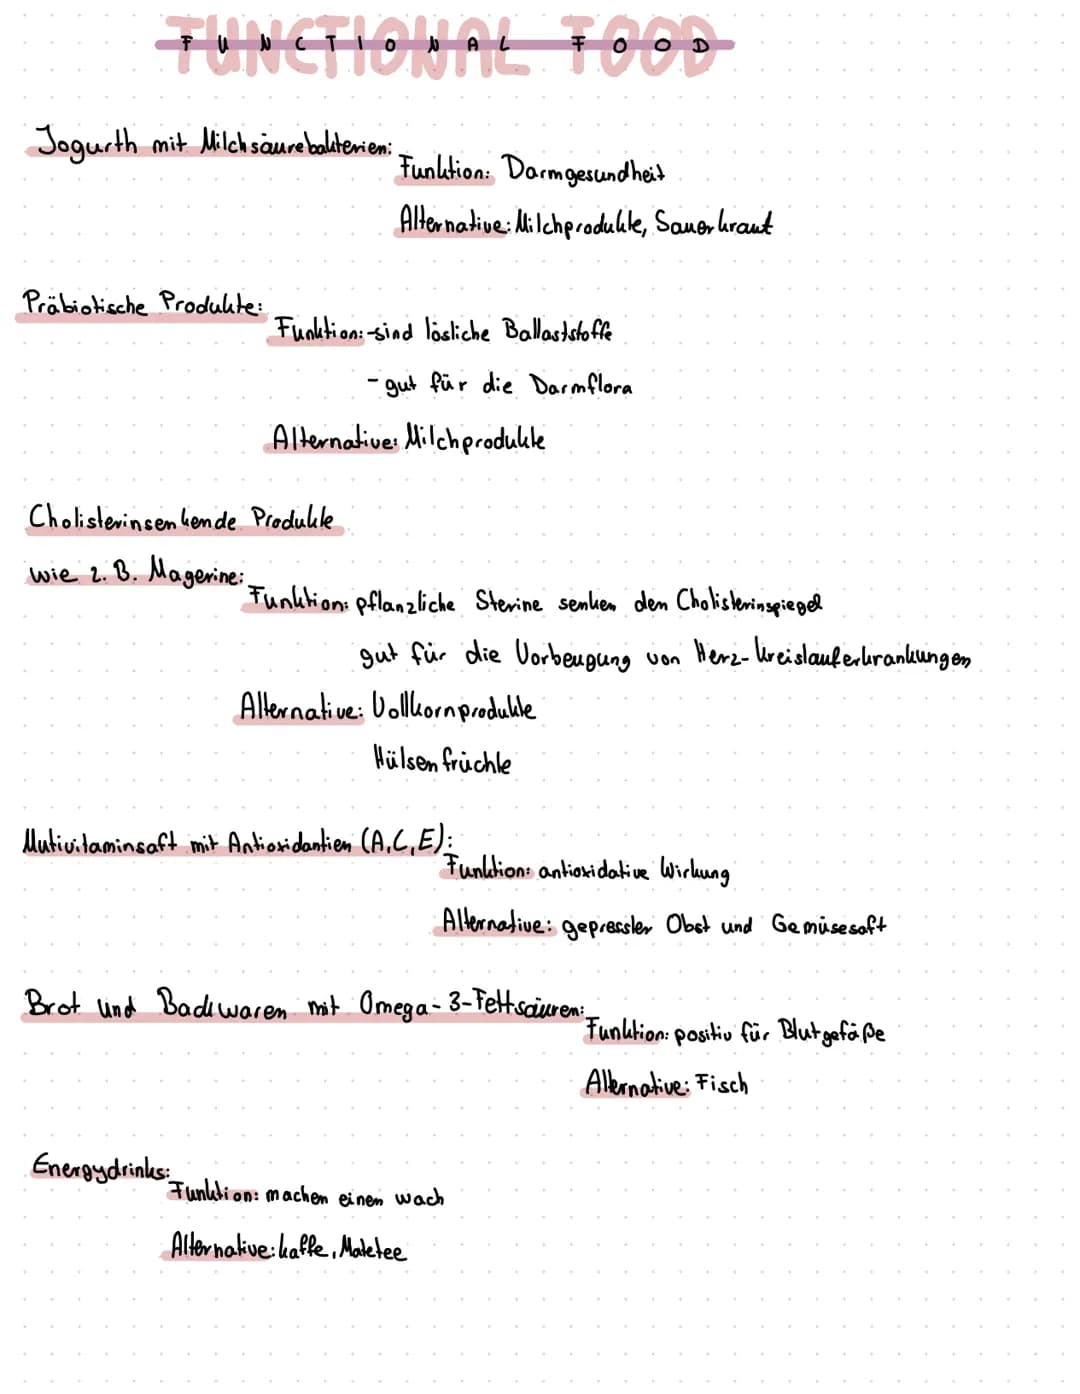 FUNCTIONAL FOOD
Jogurth mit Milchsäurebakterien:
Funktion: Darmgesundheit
Alternative: Milchprodukte, Sauerkraut
Präbiotische Produkte:
Funktion: -sind lösliche Ballaststoffe
- gut für die Darmflora
Alternative: Milchprodukte
Cholisterinsenkende Produkte
wie z. B. Magerine:
Funktion: pflanzliche Sterine senken den Cholisterinspiegel
gut für die Vorbeugung von Herz-kreislauferkrankungen
Alternative: Vollkornprodukte
Hülsenfrüchte
Mutivitaminsaft mit Antioxidantien (A,C,E):
Funktion: antioxidative Wirkung
Alternative: gepresster Obst und Gemüsesaft
Brot und Backwaren mit Omega-3-Fettsäuren:
Funktion: positiv für Blutgefäße
Alternative: Fisch
Energydrinks:
Funktion: machen einen wach
Alternative: kaffe, Matetee